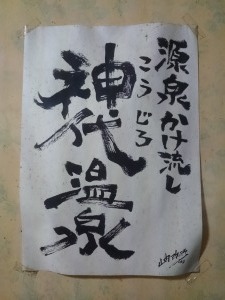 源泉かけ流し
こうじろ
神代温泉